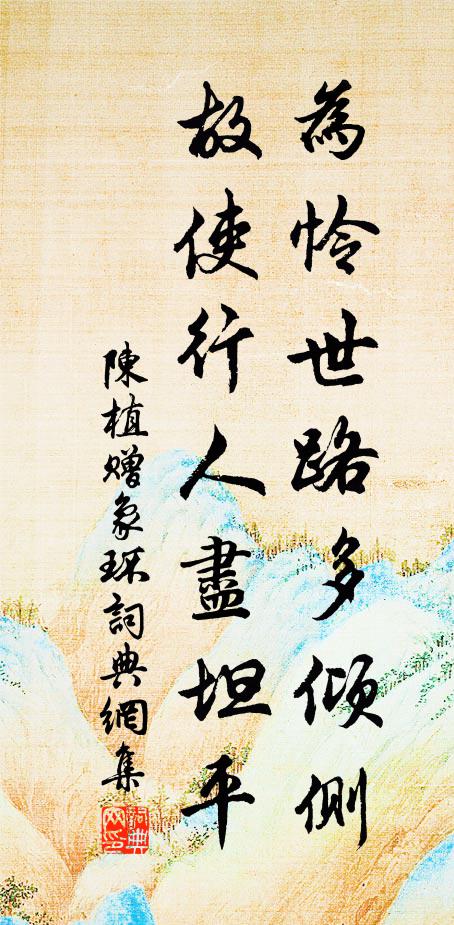 為怜世路多傾側
故使行人盡坦平
陳植贈象環詞典網集
詞典網印